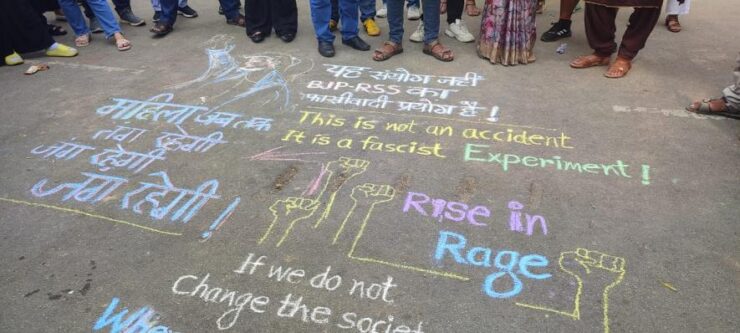 यह संयोग नहीं
BJP-RSS का
फासीवादी प्रयोग है !
This is not an accident
It is a fascist Experiment !
महिला जब तक
तंग रहेगी
जंग रहेगी
जंग रहेगी !
Rise in
Rage
If we do not
Change the societ